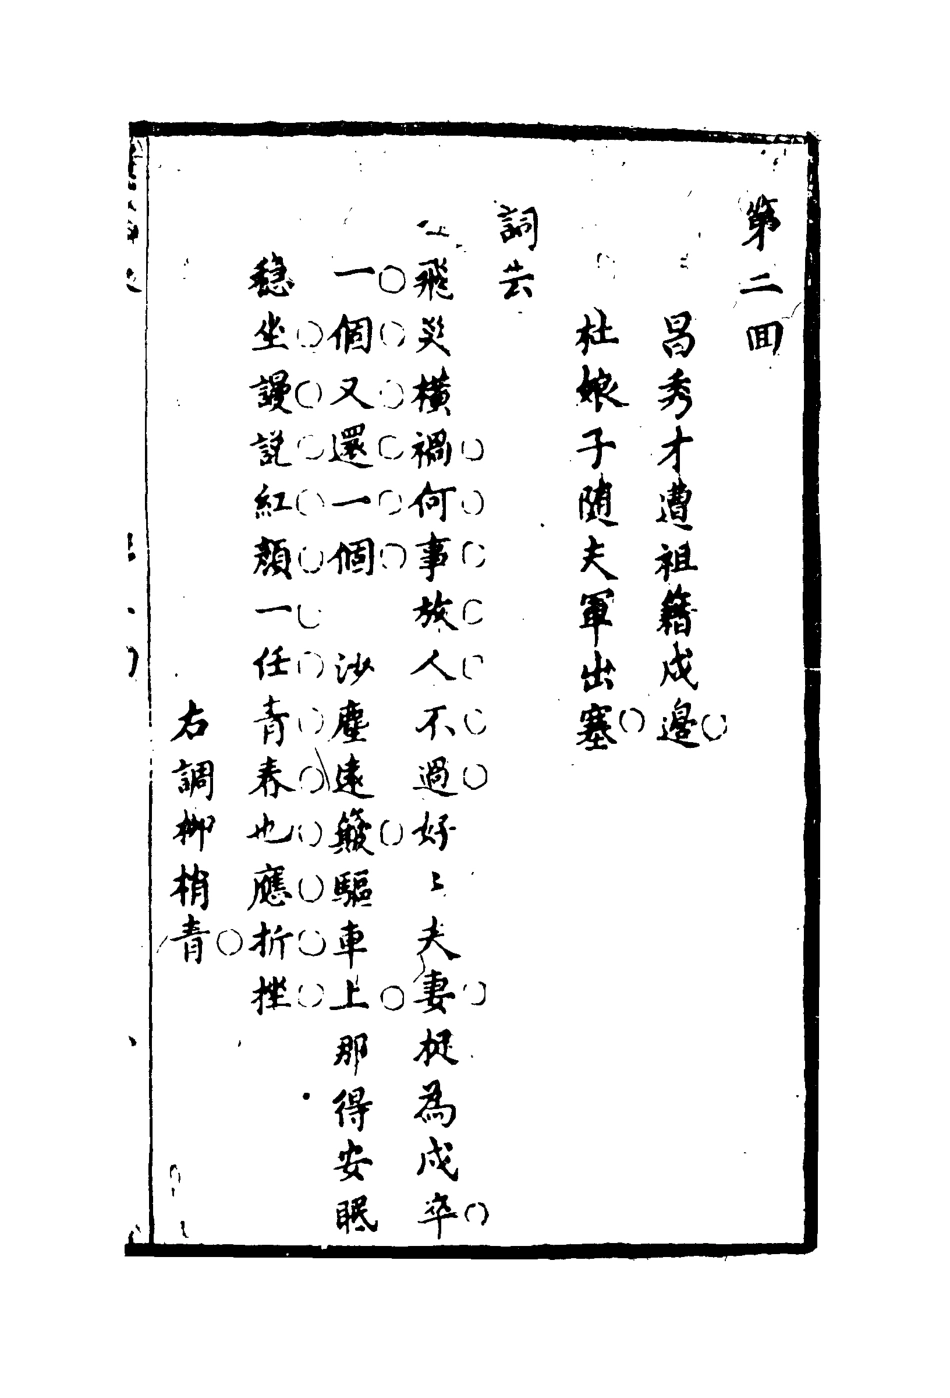 第二回
昌秀才遭祖籍戍邊
杜娘子隨夫軍出塞
詞云
飛災橫禍何事放人不過好〻夫妻捉為戍卒
一個又還一個　沙塵遠簸驅車上那得安眠
穩坐謾説紅顏一任青春也應折挫
右調柳梢青